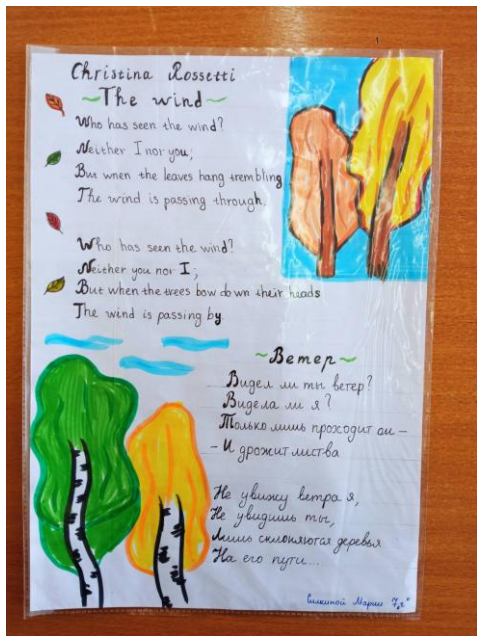 Christina Rossetti
~The wind~
Who has seen the wind?
Neither I nor you;
But wnen the leaves hang trembling
The wind is passing through.
Who has seen the wind?
Neither you nor I;
But when the trees bow down their heads
The wind is passing by
~Ветер~
Видел ли ты ветер?
Видела ли я?
Только лишь проходит он –
– И дрожит листва
Не увижу ветра я,
Не увидишь ты,
Лишь склоняются деревья
На его пути...
Марии 7 „г"